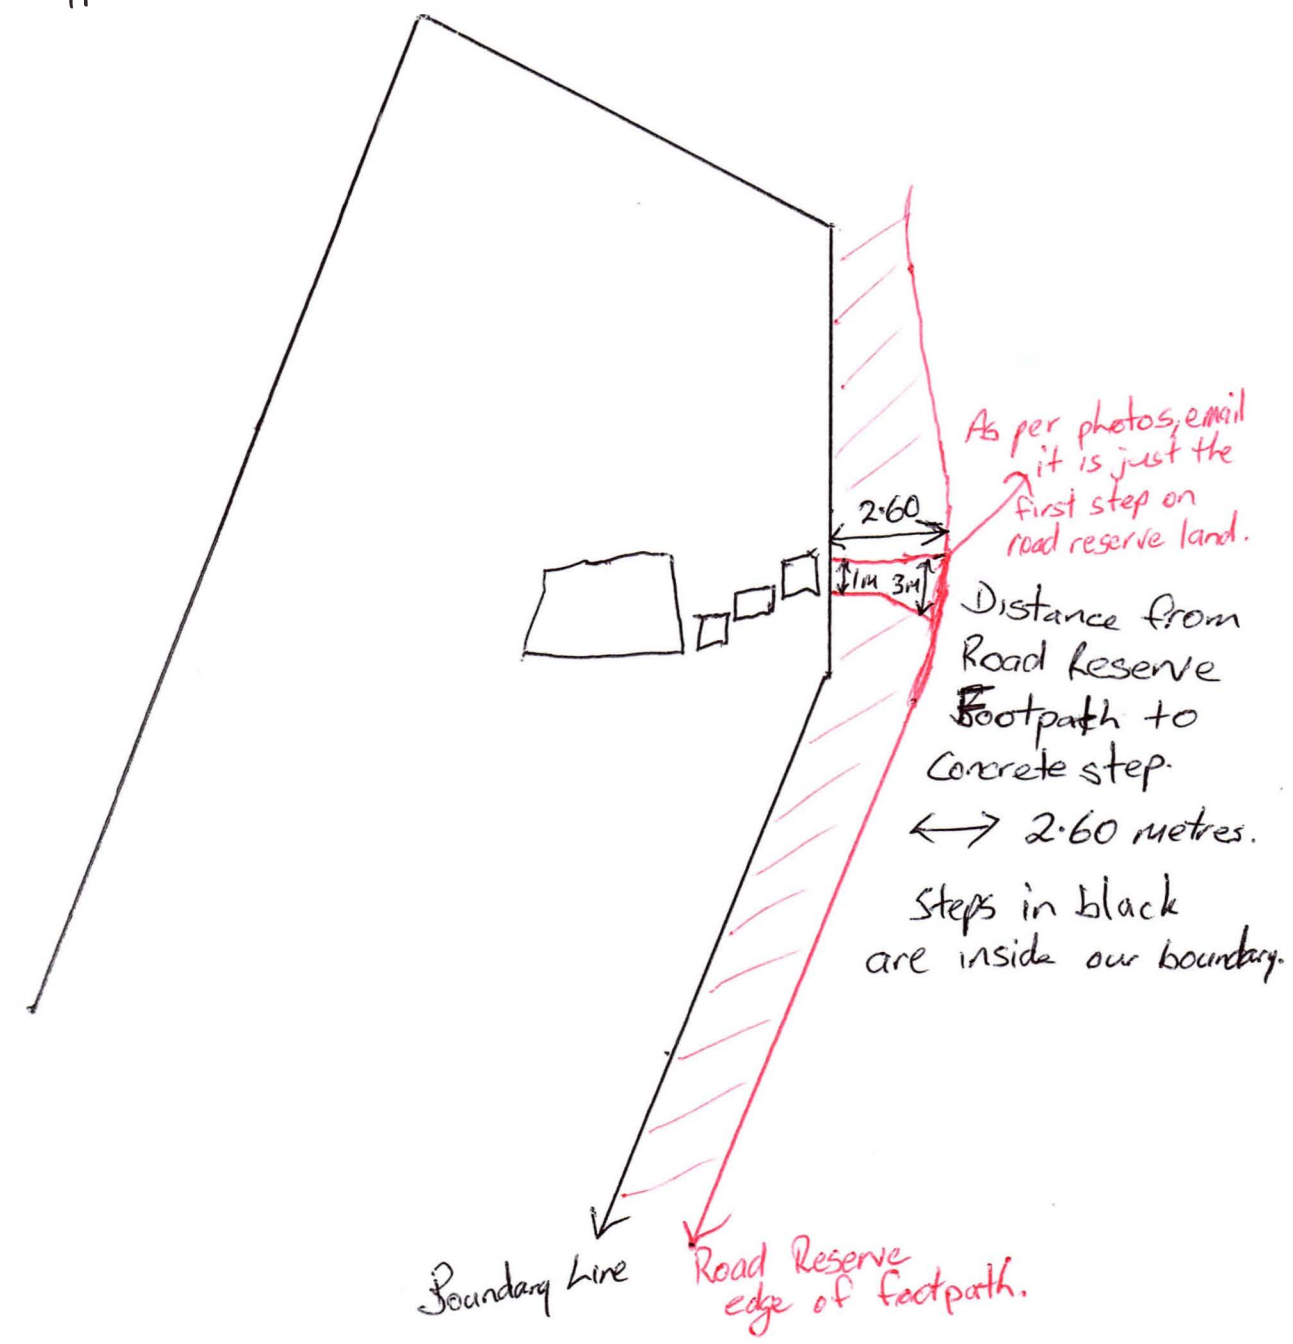 As per photos, email
it is just the
first step on
road reserve land.
2.60
1m 3m
Distance from
Road Reserve
Footpath to
Concrete step.
2.60 metres.
Steps in black
are inside our boundary.
Boundary Line
Road Reserve
edge of footpath.